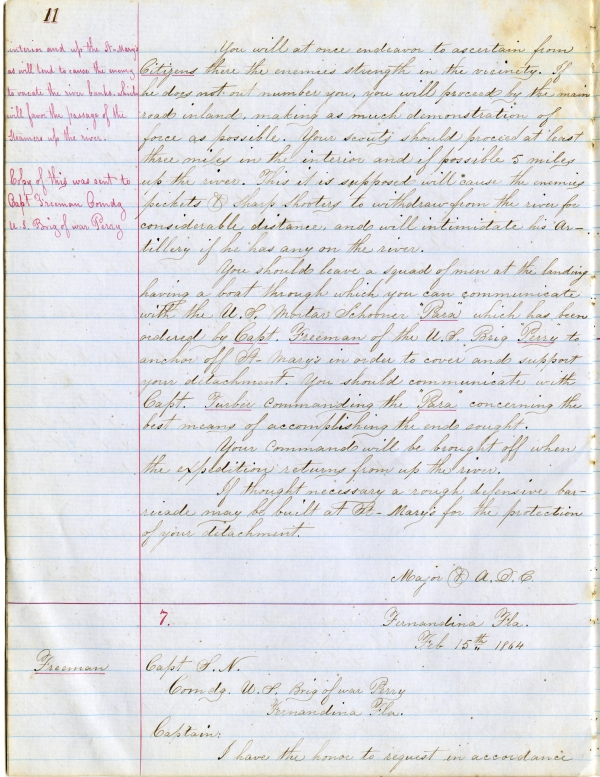 11
interior and up the St-Mary's
as will tend to cause the enemy
to vacate the river banks, which
will favor the passage of the
Steamers up the river.
Copy of this was sent to
Capt Freeman Comdg
U.S. Brig of war Perry
You will at once endeavor to ascertain from
Citizens there the enemies strength in the vicinity. If
he does not out number you, you will proceed by the main
road inland, making as much demonstration of
force as possible. Your scouts should proceed at least
three miles in the interior and if possible 5 miles
up the river. This it is supposed will cause the enemies
pickets & Sharp Shooters to withdraw from the river for
considerable distance, and will intimidate his Ar-
tillery if he has any on the river.
You should leave a squad of men at the landing
having a boat through which you can communicate
with the U.S. Mortar Schooner "Para" which has been
ordered by Capt. Freeman of the U.S. Brig "Perry" to
anchor off St-Mary's in order to cover and support
your detachment. You should communicate with
Capt. Furber commanding the "Para" concerning the
best means of accomplishing the end sought.
Your command will be brought off when
the expedition returns from up the river.
If thought necessary a rough defensive bar-
ricade may be built at St-Mary's for the protection
of your detachment.
Major & A.D.C.
7.
Fernandina Fla.
Feb 15th 1864
Freeman
Capt S.N.
Comdg. U.S. Brig of war Perry
Fernandina Fla.
Captain:
I have the honor to request in accordance